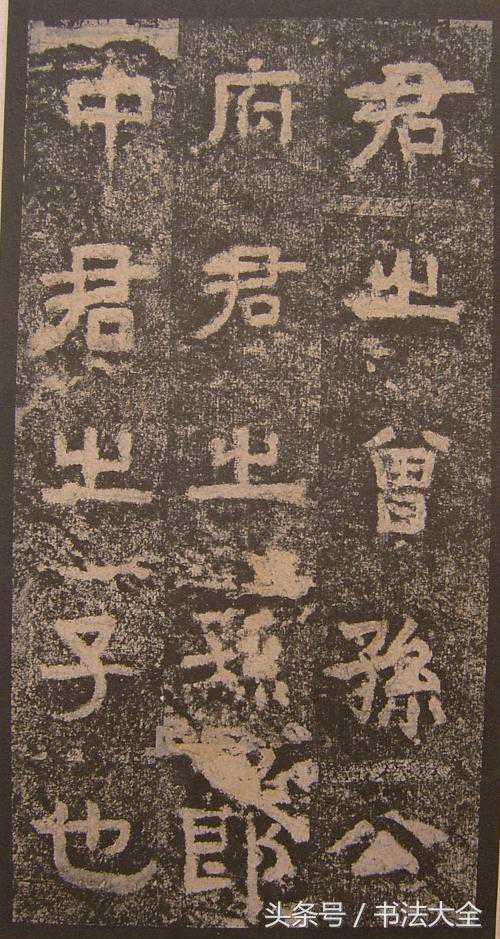 君之曾孫公
府君之孫郎
中君之子也
头条号／书法大全